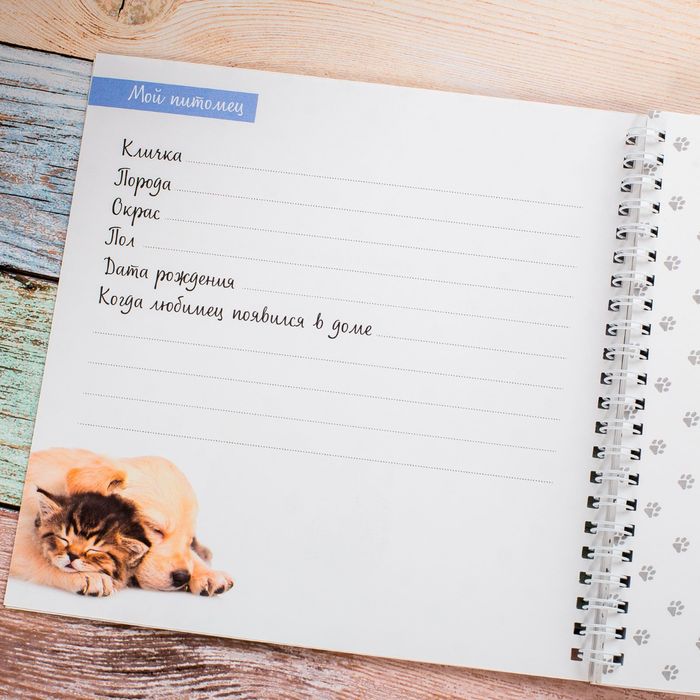 Мой питомец
Кличка
Порода
Окрас
Пол
Дата рождения
Когда любимец появился в доме